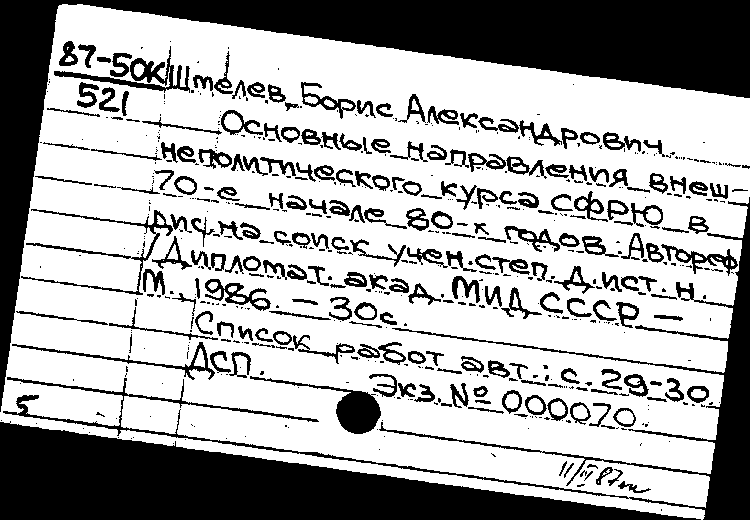 87-50К
521
Штелев, Борис Александрович.
Основные направления внеш-
неполитического курса СФРЮ в
70-е начале 80-х годов: Автореф.
дис. на соиск учен. степ. д. ист. н.
/Дипломат. акад. МИД СССР —
М., 1986. — 30с.
Список работ авт.: с. 29-30.
ДСП.
Экз. № 000070.
5
11/III 87